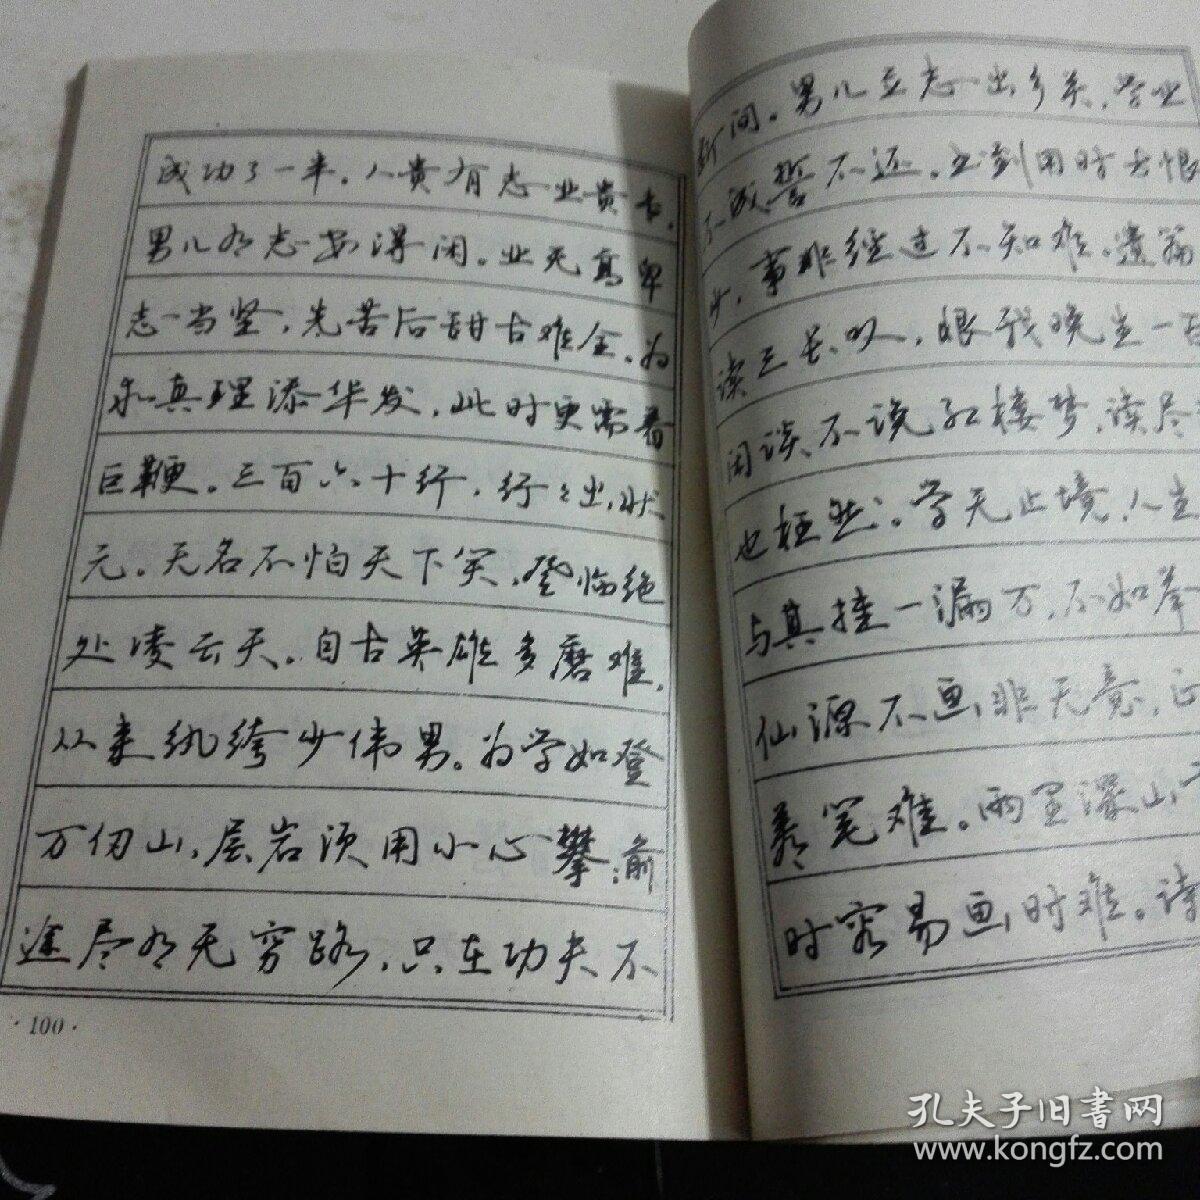 成功了一半。人贵有志业贵专,
男儿有志岂得闲。业无高卑
志当坚,先苦后甜古难全。为
求真理添华发,此时更需着
巨鞭。三百六十行,行行出状
元。无名不怕天下笑,登临绝
处凌云天。自古英雄多磨难,
从来纨绔少伟男。为学如登
万仞山,层岩须用小心攀;前
途尽有无穷路,只在功夫不
·100·
间。男儿立志出乡关,学业
不成誓不还。书到用时方恨
少,事非经过不知难。遗篇
读三长叹,恨我晚生一百
闲谈不说红楼梦,读尽
也枉然。学无止境,人生
与其挂一漏万,不如举
仙源不画非无意,正
着笔难。雨里深山
时容易画时难。诗
孔夫子旧书网
www.kongfz.com